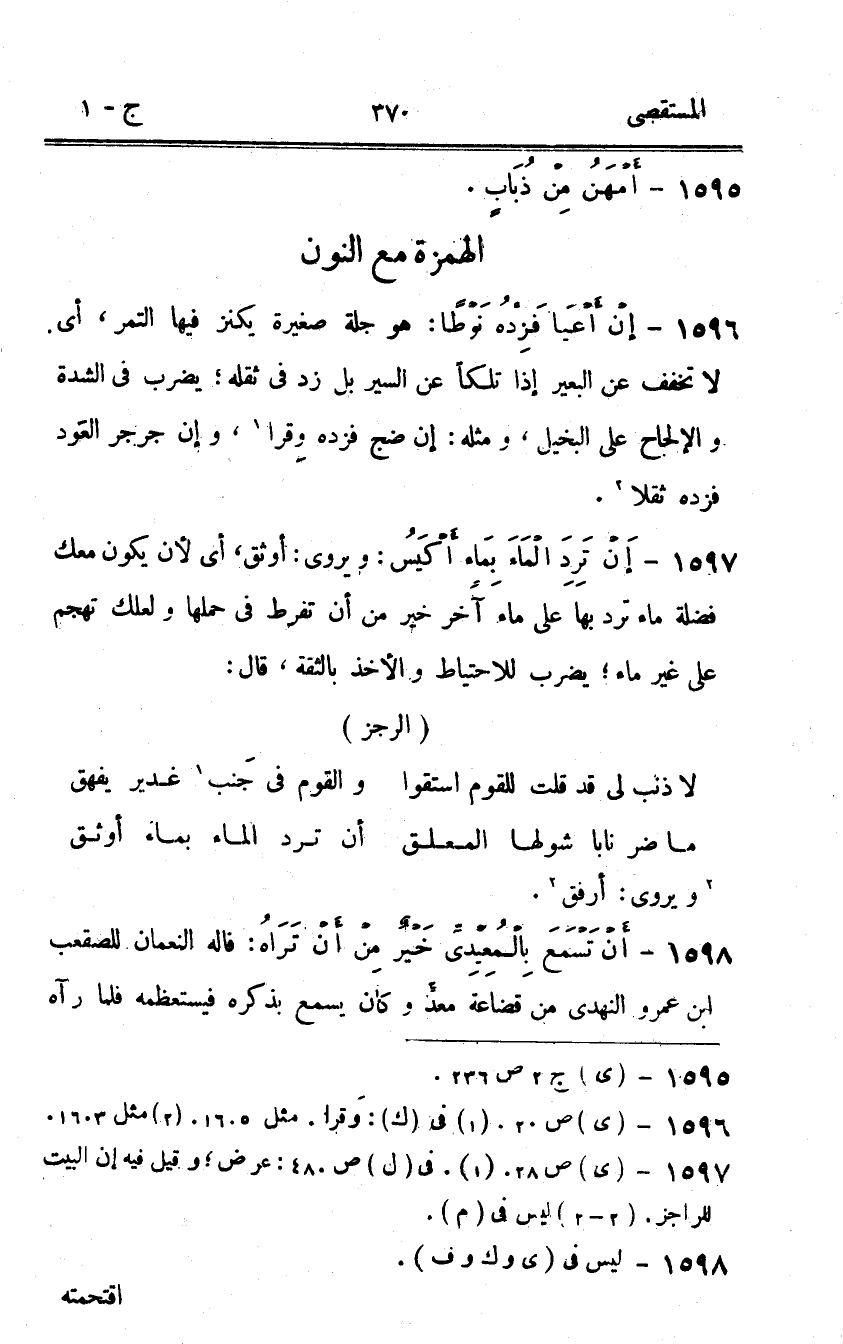 المستقصى ٣٧٠ ج - ١
١٥٩٥ - أَمْهَنُ مِنْ ذُبَابٍ .
الهمزة مع النون
١٥٩٦ - إِنْ أَعْيَا فَزِدْهُ نَوْطًا: هو جلة صغيرة يكنز فيها التمر، أى
لا تخفف عن البعير إذا تلكأ عن السير بل زد فى ثقله؛ يضرب فى الشدة
و الإلحاح على البخيل، و مثله: إن ضج فزده وِقرا١، و إن جرجر العَود
فزده ثقلا٢ .
١٥٩٧ - إِنْ تَرِدَ الْمَاءَ بِمَاءٍ أَكْيَسُ: و يروى: أوثق، أى لأن يكون معك
فضلة ماء ترد بها على ماء آخر خير من أن تفرط فى حملها و لعلك تهجم
على غير ماء؛ يضرب للاحتياط و الأخذ بالثقة، قال:
( الرجز )
لا ذنب لى قد قلت للقوم استقوا و القوم فى جَنب١ غدير يفهق
ما ضر نابا شولها المعلق أن ترد الماء بماء أوثق
٢و يروى: أرفق٢ .
١٥٩٨ - أَنْ تَسْمَعَ بِالْمُعِيْدِىِّ خَيْرٌ مِنْ أَنْ تَرَاهُ: قاله النعمان للصقعب
ابن عمرو النهدى من قضاعة معدّ و كان يسمع بذكره فيستعظمه فلما رآه
١٥٩٥ - (ى) ج ٢ ص ٢٣٦ .
١٥٩٦ - (ى) ص ٢٠ . (١) فى (ك): وَقرا . مثل ١٦٠٥. (٢) مثل ١٦٠٣.
١٥٩٧ - (ى) ص ٢٨. (١) . فى (ل) ص ٤٨٠: عرض؛ و قيل فيه إن البيت
للراجز . (٢-٢) ليس فى (م) .
١٥٩٨ - ليس فى (ى و ك و ف) .
اقتحمته